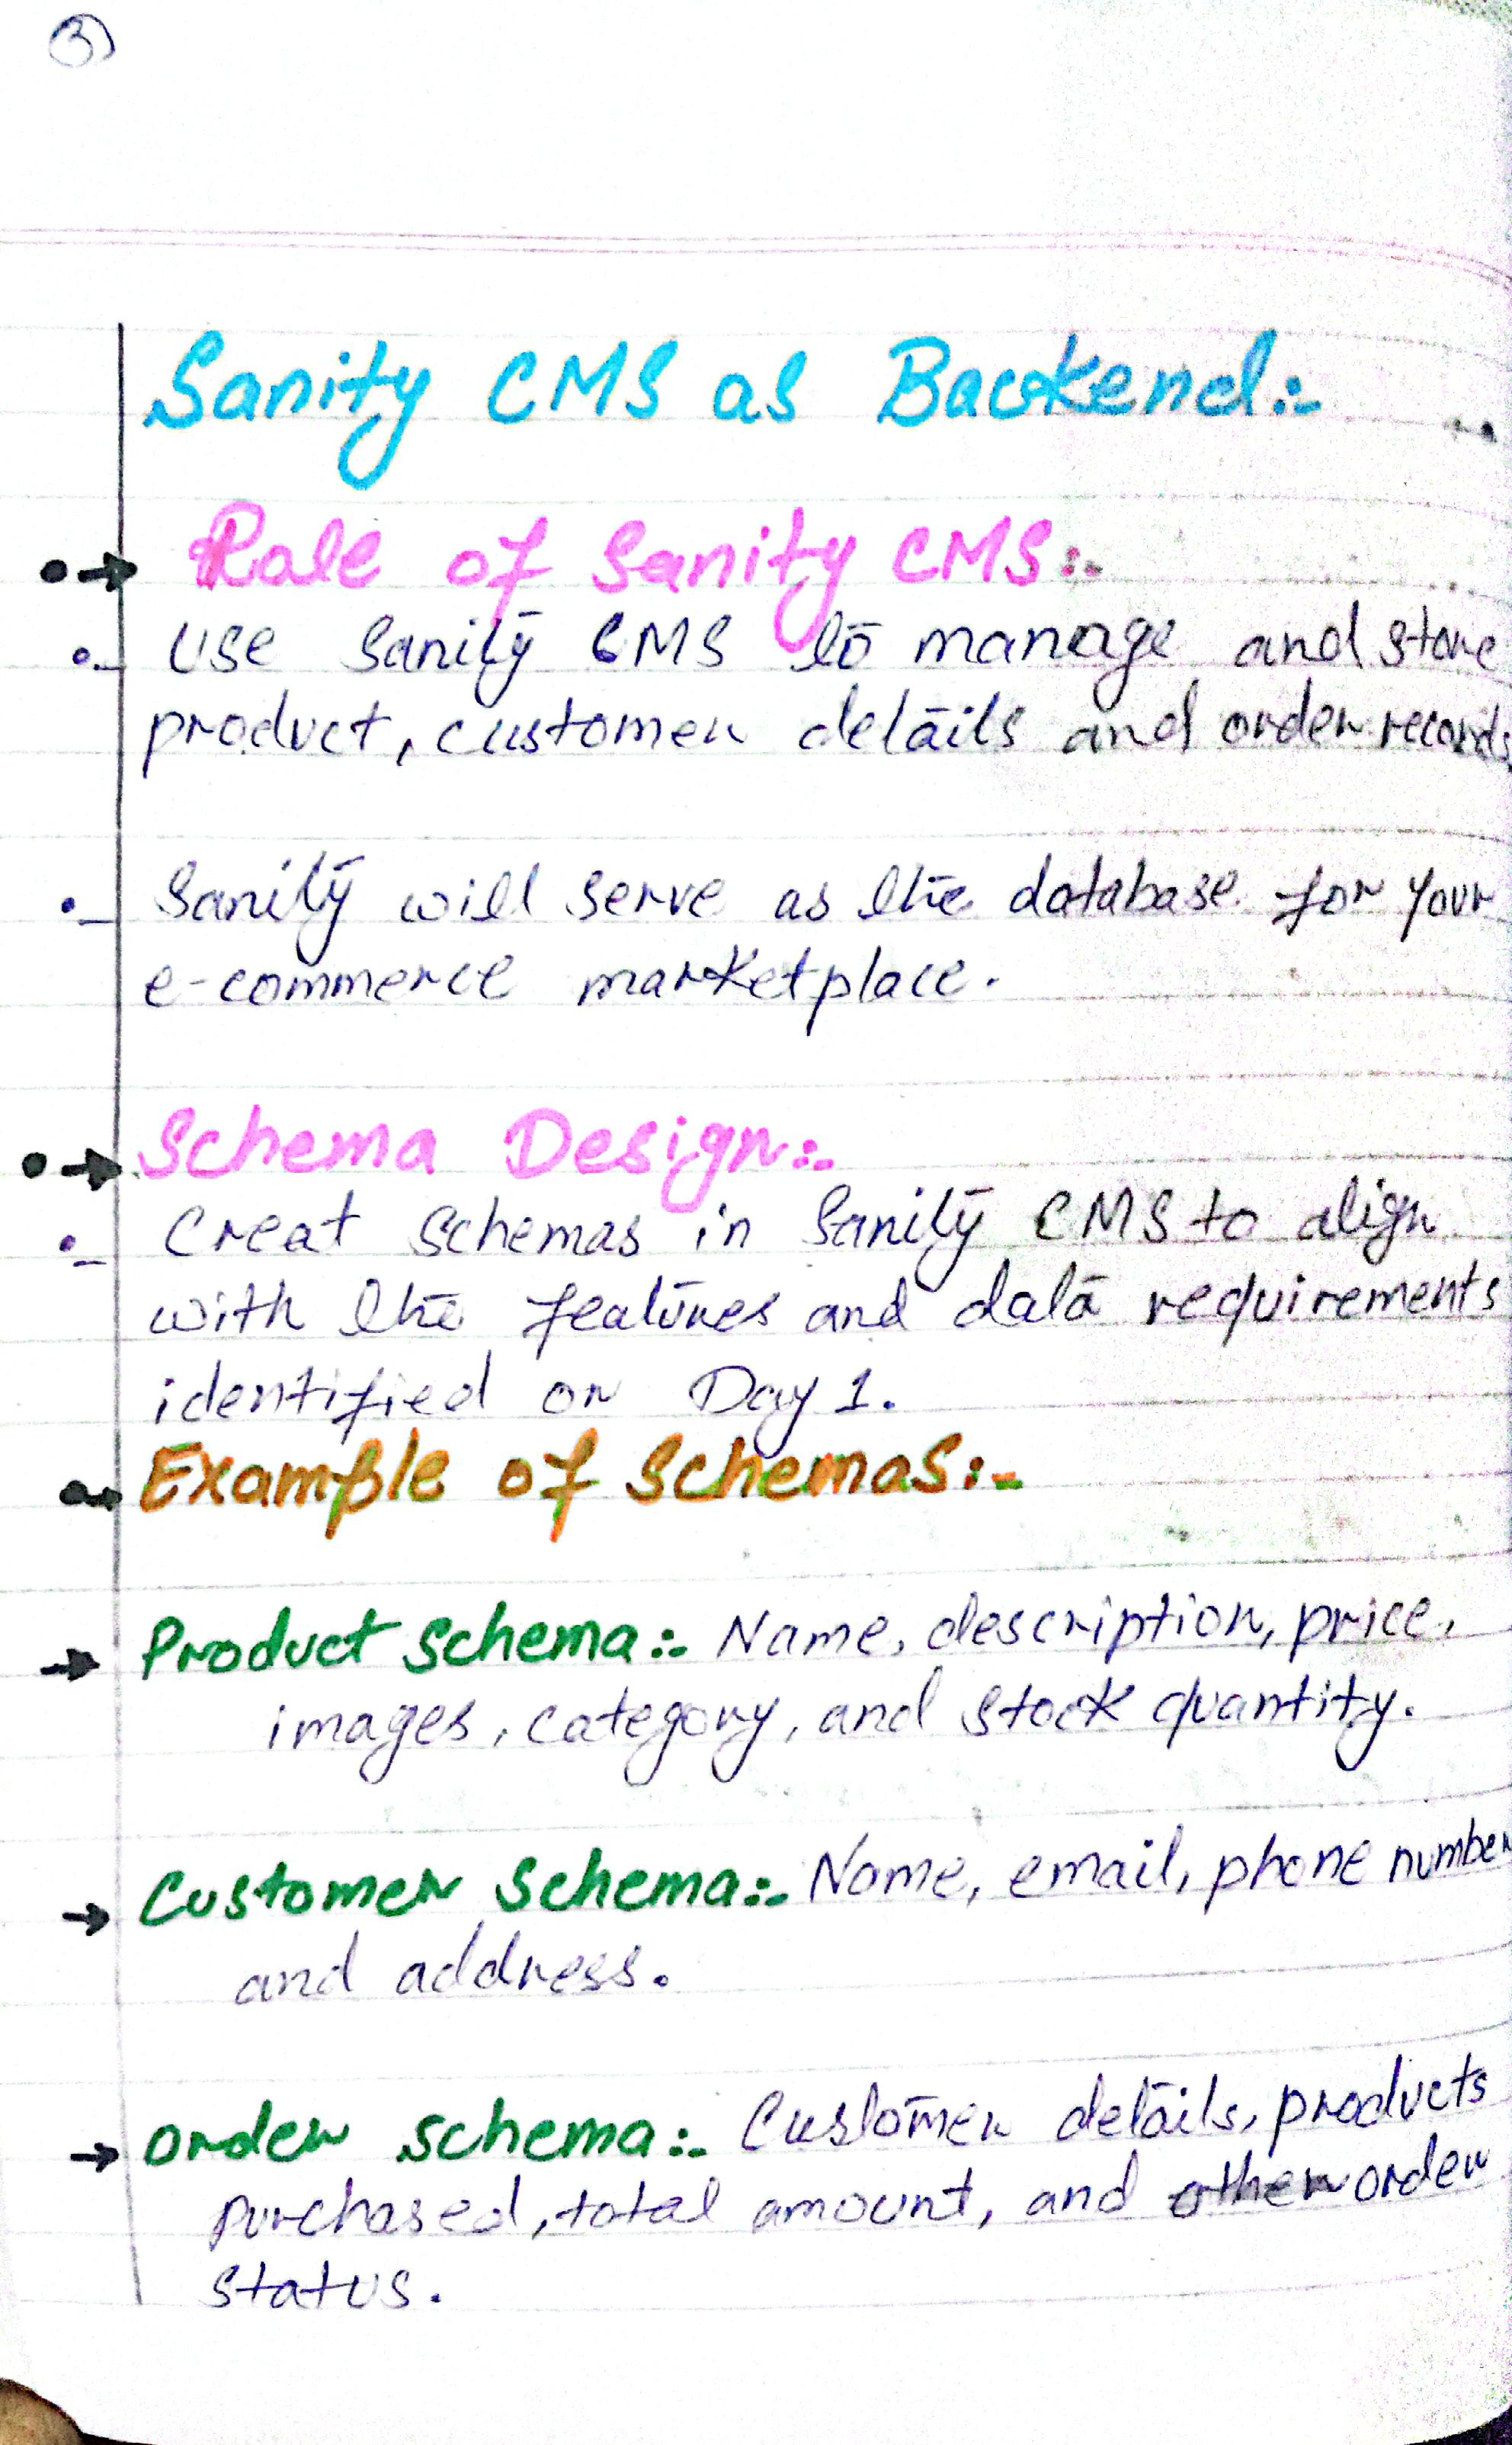 3
Sanity CMS as Backend:-
Role of Sanity CMS:-
Use Sanity CMS to manage and store
product, customer details and order records
Sanity will serve as the database for your
e-commerce marketplace.
Schema Design:-
Creat schemas in Sanity CMS to align
with the features and data requirements
identified on Day 1.
Example of Schemas:-
Product Schema:- Name, description, price,
images, category, and stock quantity.
Customer Schema:- Name, email, phone number
and address.
order schema:- Customer details, products
purchased, total amount, and other order
status.